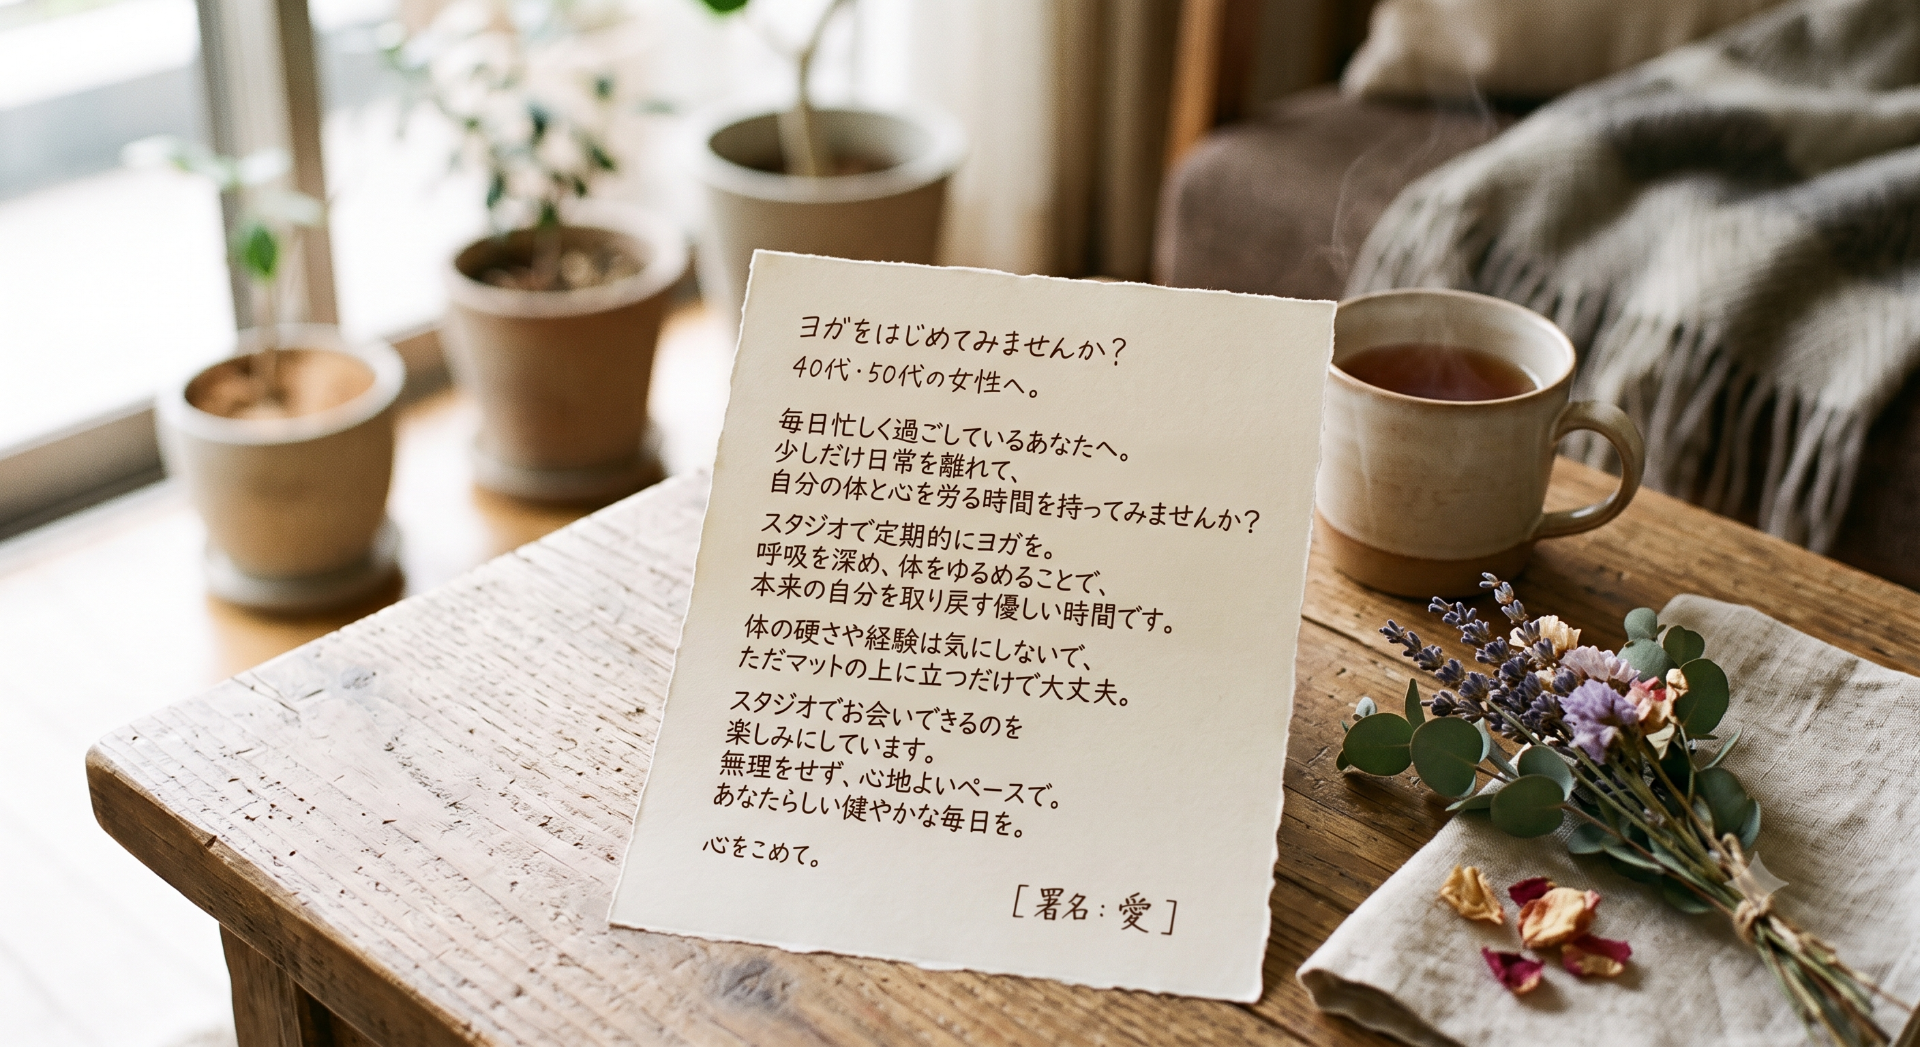 ヨガをはじめてみませんか?
40代・50代の女性へ。
毎日忙しく過ごしているあなたへ。
少しだけ日常を離れて、
自分の体と心を労る時間を持ってみませんか?
スタジオで定期的にヨガを。
呼吸を深め、体をゆるめることで、
本来の自分を取り戻す優しい時間です。
体の硬さや経験は気にしないで、
ただマットの上に立つだけで大丈夫。
スタジオでお会いできるのを
楽しみにしています。
無理をせず、心地よいペースで。
あなたらしい健やかな毎日を。
心をこめて。
[署名:愛]